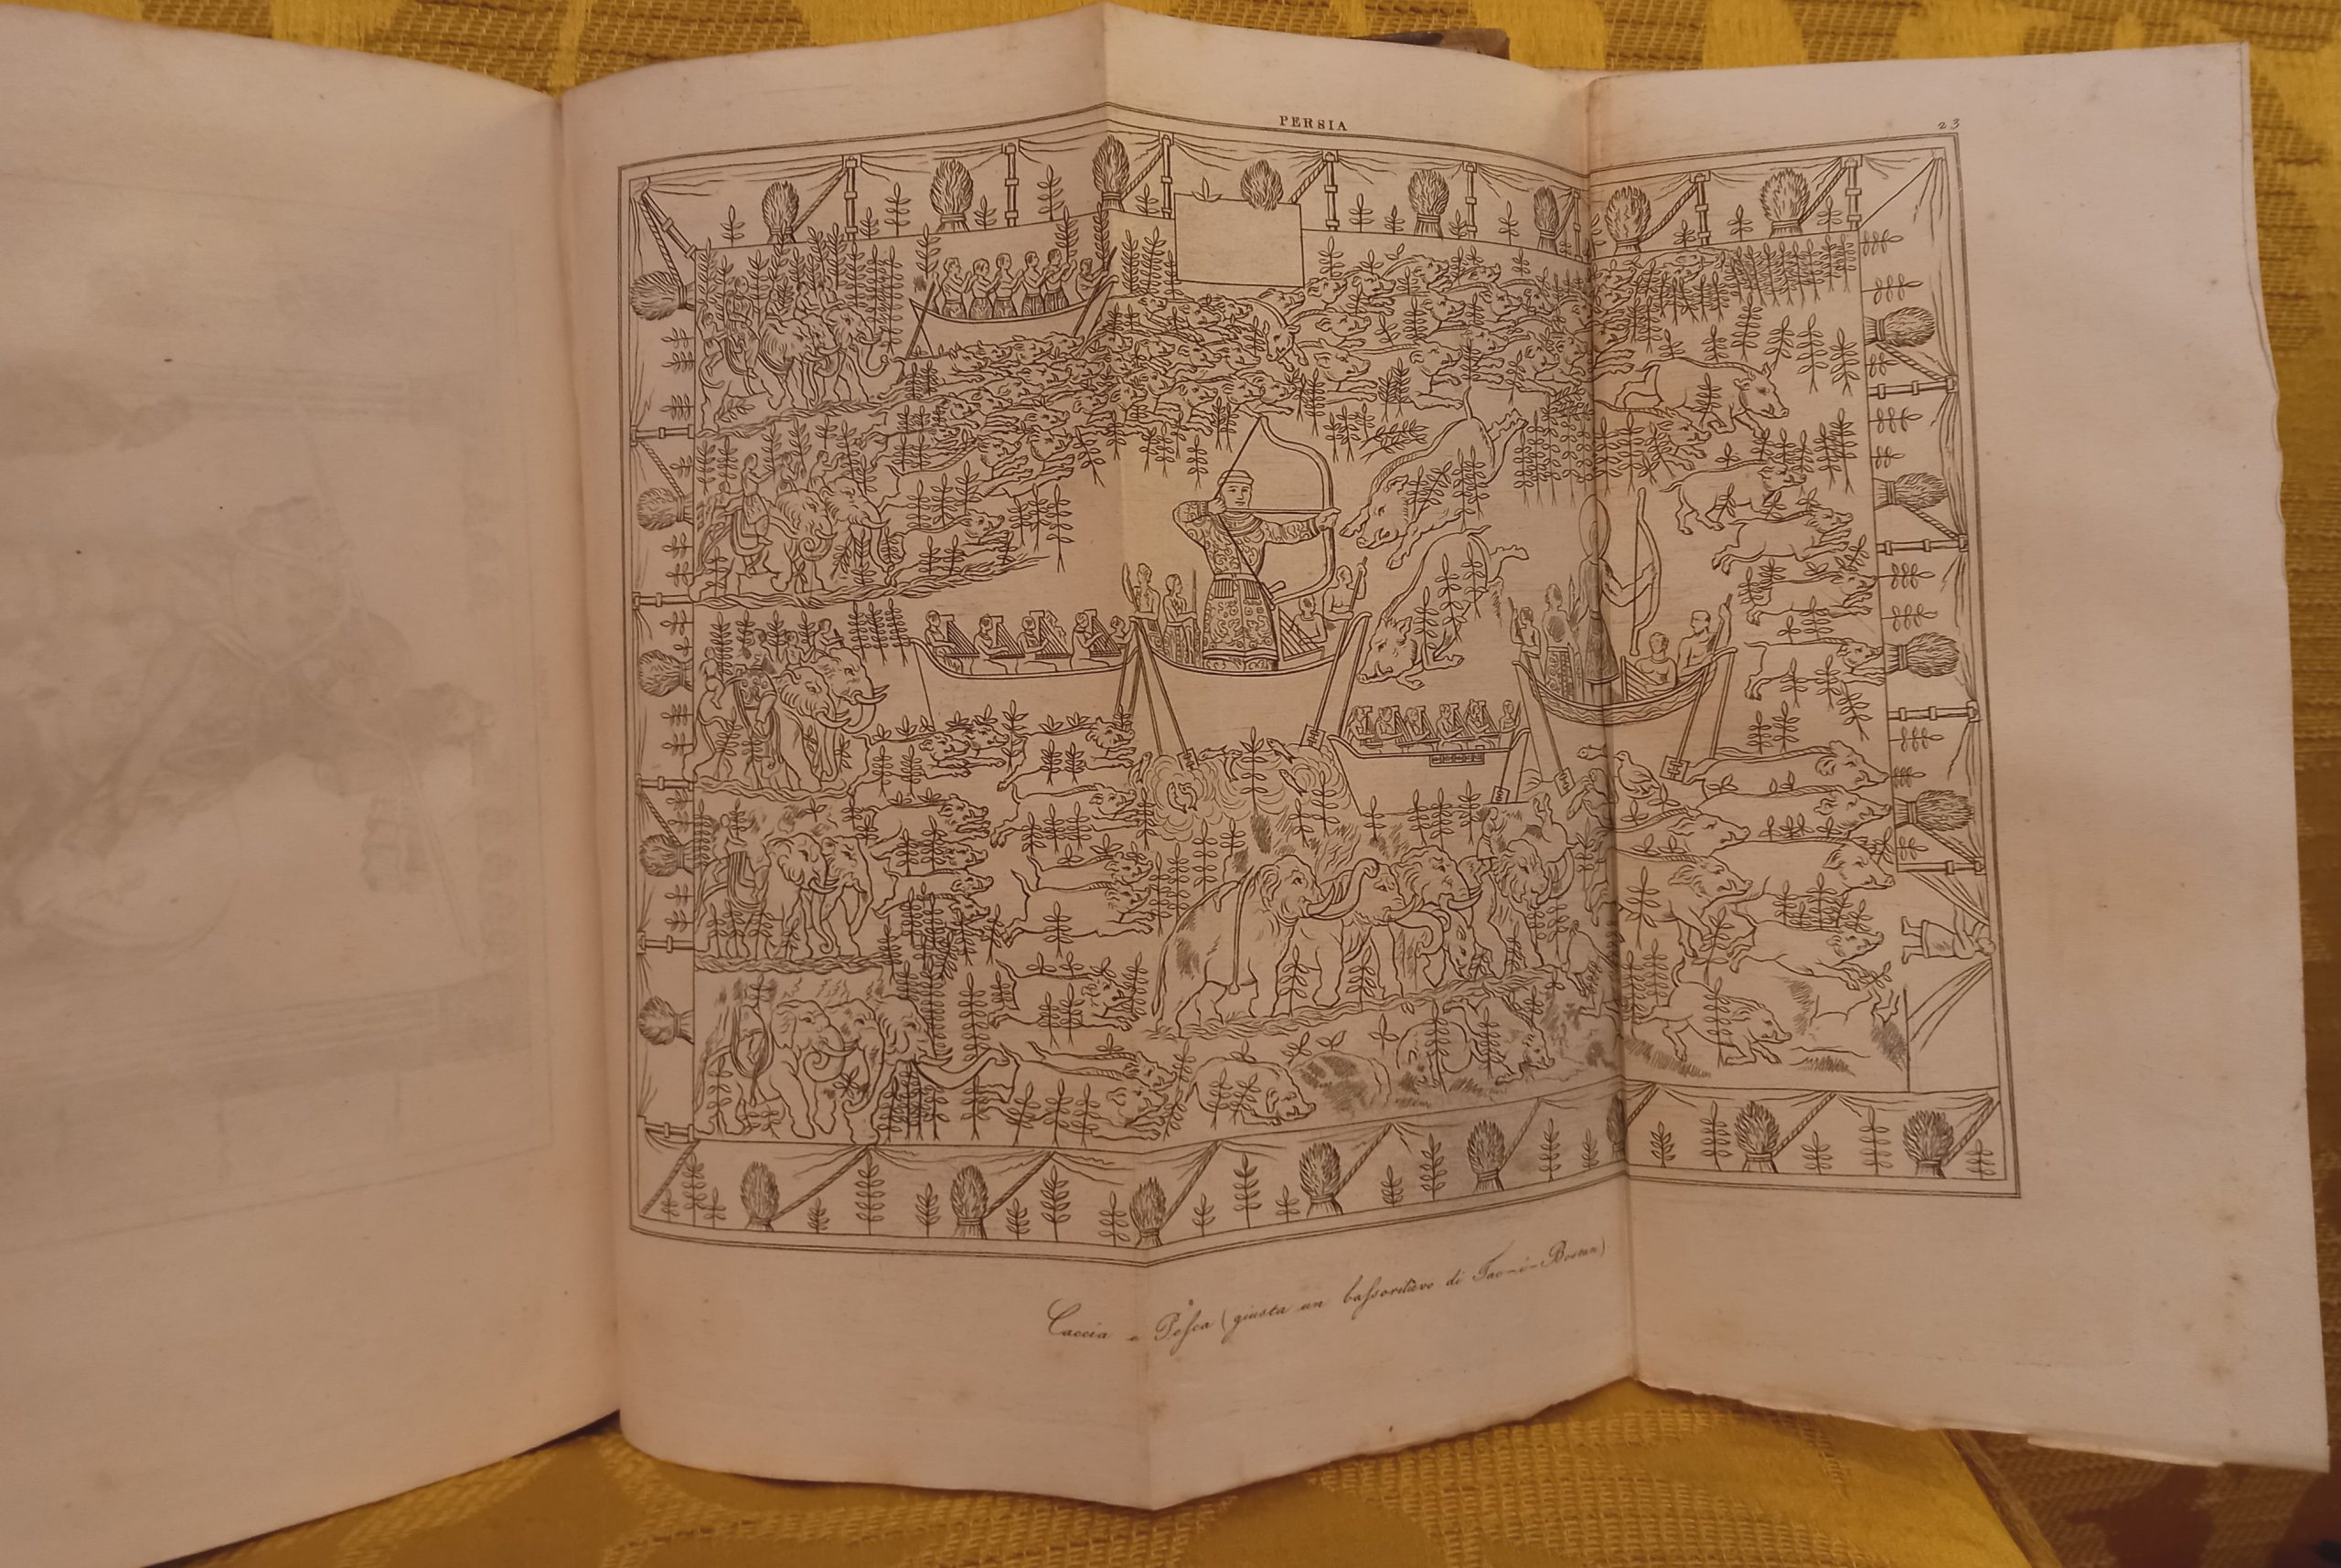 PERSIA
23
Caccia e Pesca (giusta un bassorilievo di Tac-i-Bostan)